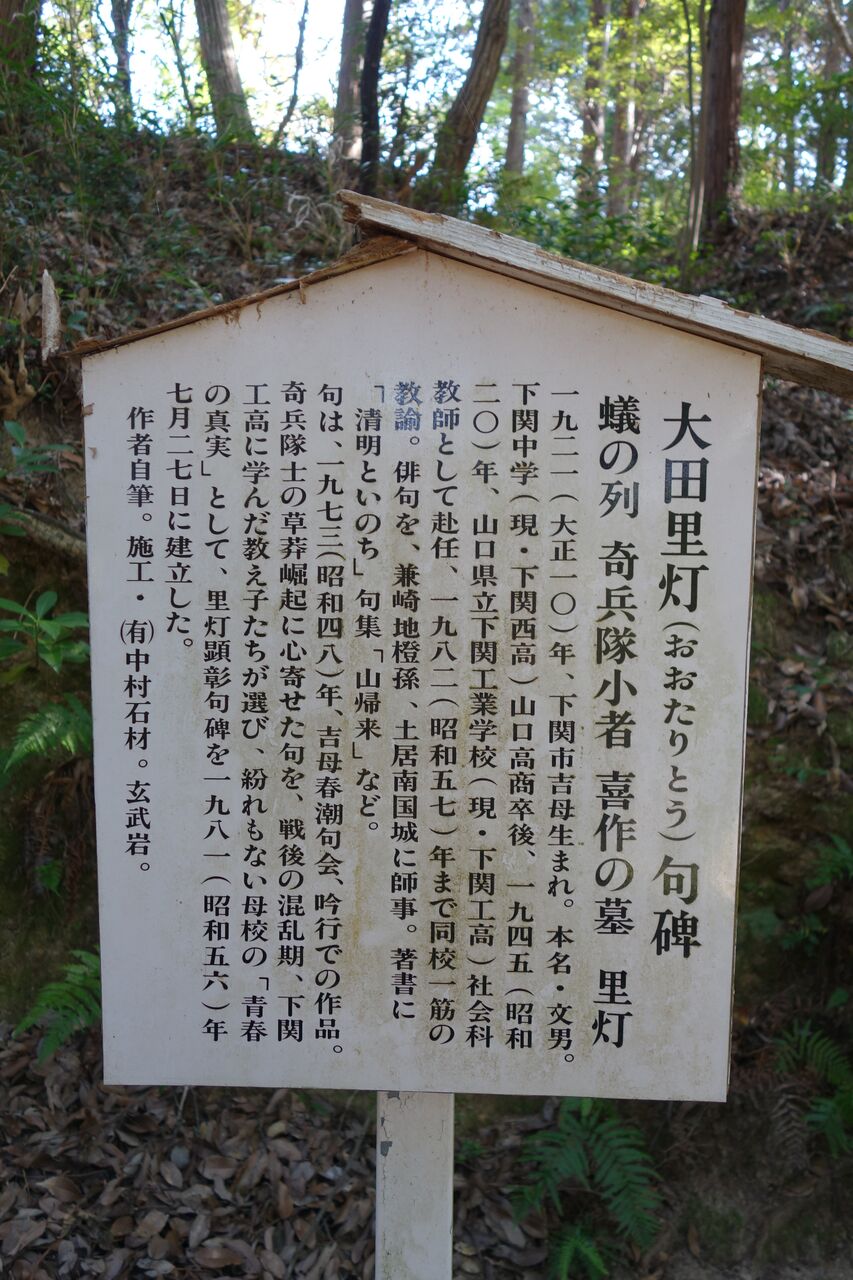 大田里灯(おおたりとう)句碑
蟻の列 奇兵隊小者 喜作の墓 里灯
一九二一(大正一〇)年、下関市吉母生まれ。本名・文男。
下関中学(現・下関西高)山口高商卒後、一九四五(昭和
二〇)年、山口県立下関工業学校(現・下関工高)社会科
教師として赴任、一九八二(昭和五七)年まで同校一筋の
教諭。俳句を、兼崎地橙孫、土居南国城に師事。著書に
「清明といのち」句集「山帰来」など。
句は、一九七三(昭和四八)年、吉母春潮句会、吟行での作品。
奇兵隊士の草莽崛起に心寄せた句を、戦後の混乱期、下関
工高に学んだ教え子たちが選び、紛れもない母校の「青春
の真実」として、里灯顕彰句碑を一九八一(昭和五六)年
七月二七日に建立した。
作者自筆。施工・㈲中村石材。玄武岩。